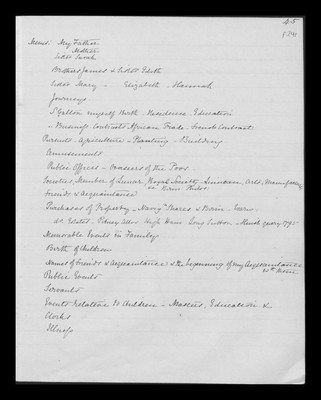 45
Mems. My Father
Mother
Sister Sarah
Brothers James & Sister Edith
Sister Mary - Elizabeth - Hannah
Journeys
S Galton myself Birth - Residences. Education
" Business Contracts African Trade. French Contract
Pursuits. Agriculture - Planting - Building
Amusements
Public Offices - Overseers of the Poor
Societies Member of Lunar, Royal Society - Linnean. Arts. Manufactory
Friends & Acquaintance
Purchases of Property - Mary's Mares
Do. Estates - High Ham Long Sutton - 1795
Memorable Events in Family
Birth of Children
Names of Friends & Acquaintance & the beginning of my Acquaintance
with them
Public Events
Servants
Events relative to Children - Masters, Education &
Clerks
Illness